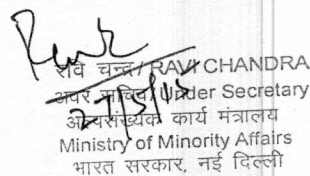 रवि चन्द्र/RAVI CHANDRA
अवर सचिव/Under Secretary
अल्पसंख्यक कार्य मंत्रालय
Ministry of Minority Affairs
भारत सरकार, नई दिल्ली